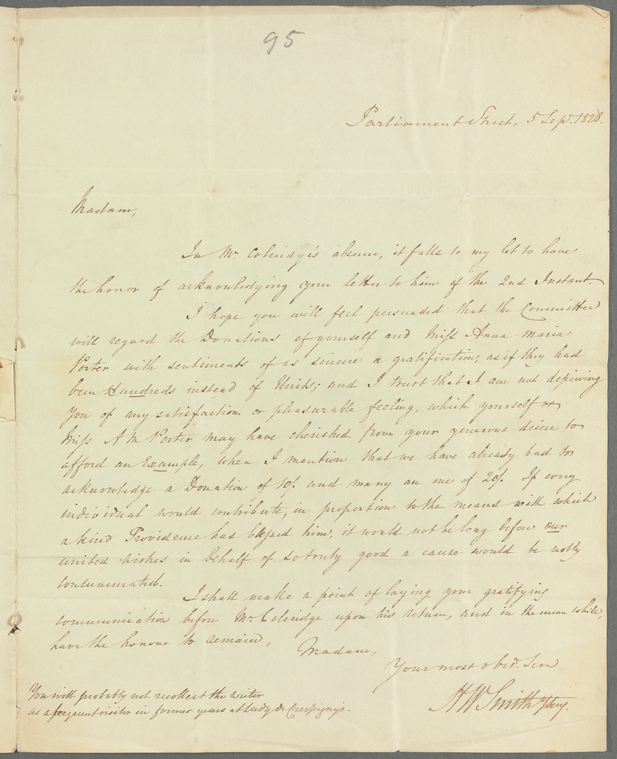 95
Parliament Street, 5 Sepr. 1828.
Madam,
In Mr Coleridge's absence, it falls to my lot to have
the honor of acknowledging your letter to him of the 2nd Instant.
I hope you will feel persuaded that the Committee
will regard the Donations of yourself and Miss Anna Maria
Porter with sentiments of as sincere a gratification, as if they had
been Hundreds instead of Units; and I trust that I am not depriving
You of any satisfaction or pleasurable feeling, which yourself or
Miss A M Porter may have cherished from your generous desire to
afford an Example, when I mention that we have already had to
acknowledge a Donation of 10/. and many an one of 20/. If every
individual would contribute, in proportion to the means with which
a kind Providence has blessed him, it would not be long before our
united wishes in behalf of so truly good a cause would be
consummated.
I shall make a point of laying your gratifying
communication before Mr Coleridge upon his return, and in the mean while,
have the honour to remain,
Madam,
Your most obed. Ser
H W Smith
You will probably not recollect the writer
as a frequent visitor in former years at Lady de Crespigny's.